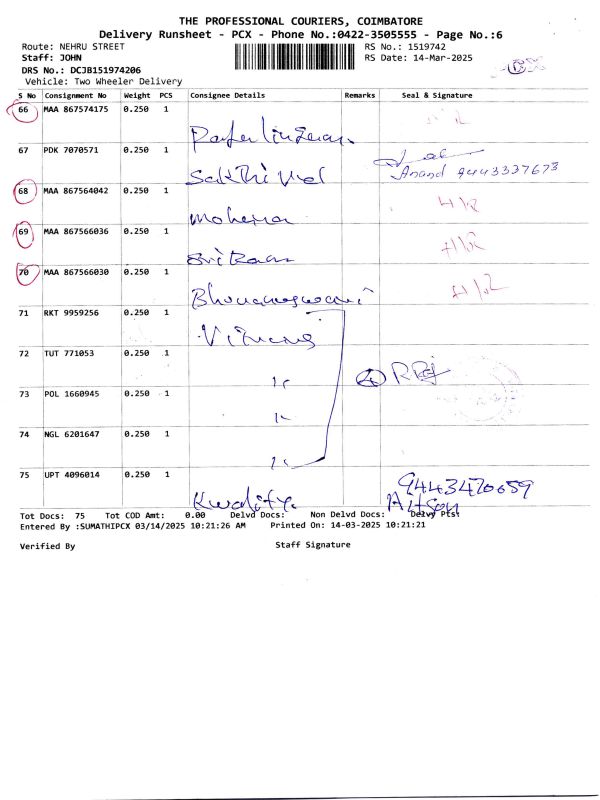 THE PROFESSIONAL COURIERS, COIMBATORE
Delivery Runsheet - PCX - Phone No.:0422-3505555 - Page No.:6
Route: NEHRU STREET
RS No.: 1519742
Staff: JOHN
RS Date: 14-Mar-2025
DRS No.: DCJB151974206
Vehicle: Two Wheeler Delivery
S No Consignment No Weight PCS Consignee Details Remarks Seal & Signature
66 MAA 867574175 0.250 1
67 PDK 7070571 0.250 1 Sakthi Vel Anand 9443337673
68 MAA 867564042 0.250 1 Mohena
69 MAA 867566036 0.250 1 Sri Raam
70 MAA 867566030 0.250 1
71 RKT 9959256 0.250 1
72 TUT 771053 0.250 1
73 POL 1660945 0.250 1
74 NGL 6201647 0.250 1
75 UPT 4096014 0.250 1 Kwality. 9443470659
Tot Docs: 75 Tot COD Amt: 0.00 Delvd Docs: Non Delvd Docs: Delvy Pts:
Entered By :SUMATHIPCX 03/14/2025 10:21:26 AM Printed On: 14-03-2025 10:21:21
Verified By Staff Signature